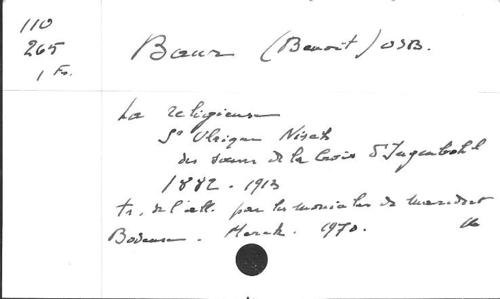 110
265
1 Fr.
Baur (Benoît) OSB.
La religieuse
Sr Ulrique Nisch
des soeurs de la Croix d'Ingenbohl
1882 - 1913
tr. de l'all. par les moniales de
. 1970.